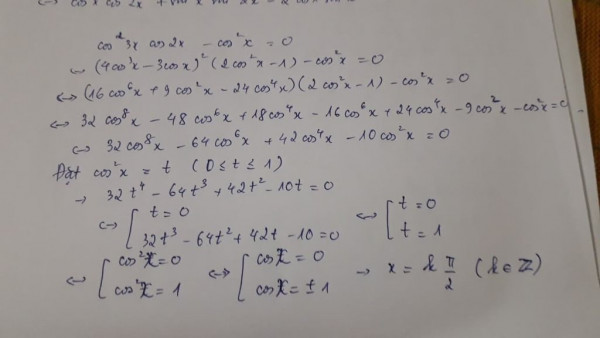 ⇔ cos x cos 2x + sin x sin 2x = 2 cos
cos²3x cos2x - cos²x = 0
⇔ (4cos³x - 3cosx)² (2cos²x - 1) - cos²x = 0
⇔ (16cos⁶x + 9cos²x - 24cos⁴x)(2cos²x - 1) - cos²x = 0
⇔ 32cos⁸x - 48cos⁶x + 18cos⁴x - 16cos⁶x + 24cos⁴x - 9cos²x - cos²x = 0
⇔ 32cos⁸x - 64cos⁶x + 42cos⁴x - 10cos²x = 0
Đặt cos²x = t (0 ≤ t ≤ 1)
→ 32t⁴ - 64t³ + 42t² - 10t = 0
⇔ [ t = 0 ⇔ [ t = 0
32t³ - 64t² + 42t - 10 = 0 t = 1
⇔ [ cos²x = 0 ⇔ [ cosx = 0 → x = k π/2 (k ∈ ℤ)
cos²x = 1 cosx = ± 1